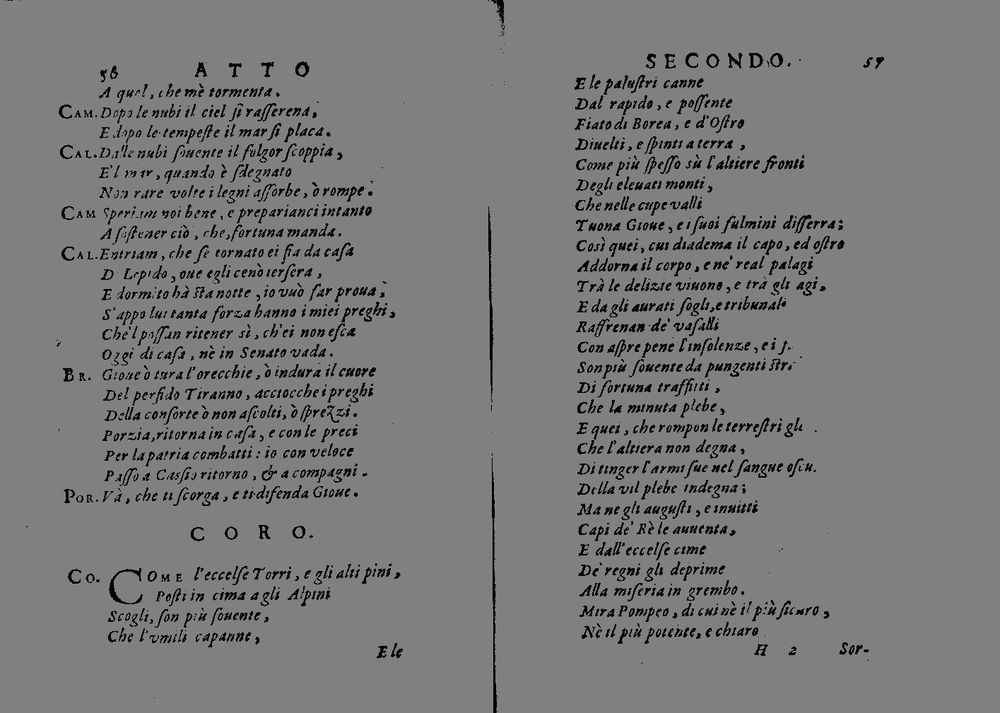 56 ATTO
A quel, che m'è tormenta.
CAM. Dopo le nubi il ciel ſi raſſerena,
E dopo le tempeſte il mar ſi placa.
CAL. Dalle nubi ſouente il folgor ſcoppia,
E'l mar, quando è ſdegnato
Non rare volte i legni aſſorbe, ò rompe.
CAM Speriam noi bene, e preparianci intanto
A ſoſtener ciò, che, fortuna manda.
CAL. Entriam, che ſe tornato ei ſia da caſa
Di Lepido, oue egli cenò ierſera,
E dormito hà ſta notte, io vuò far proua,
S'appo lui tanta forza hanno i miei preghi,
Che'l poſſan ritener sì, ch'ei non eſca
Oggi di caſa, nè in Senato vada.
BR. Gioue ò tura l'orecchie, ò indura il cuore
Del perfido Tiranno, acciocche i preghi
Della conſorte ò non aſcolti, ò ſprezzi.
Porzia, ritorna in caſa, e con le preci
Per la patria combatti: io con veloce
Paſſo a Caſſio ritorno, & a compagni.
POR. Và, che ti ſcorga, e ti difenda Gioue.
CORO.
CO. COME l'eccelſe Torri, e gli alti pini,
Poſti in cima a gli Alpini
Scogli, ſon più ſouente,
Che l'vmili capanne,
E le
SECONDO. 57
E le paluſtri canne
Dal rapido, e poſſente
Fiato di Borea, e d'Oſtro
Diuelti, e ſpinti a terra,
Come più ſpeſſo sù l'altiere fronti
Degli eleuati monti,
Che nelle cupe valli
Tuona Gioue, e i ſuoi fulmini diſſerra;
Così quei, cui diadema il capo, ed oſtro
Addorna il corpo, e ne' real palagi
Trà le delizie viuono, e trà gli agi,
E da gli aurati ſogli, e tribunale
Raffrenan de' vaſalli
Con aſpre pene l'inſolenze, e i
Son più ſouente da pungenti
Di fortuna traffitti,
Che la minuta plebe,
E quei, che rompon le terreſtri
Che l'altiera non degna,
Di tinger l'armi ſue nel ſangue
Della vil plebe indegna;
Ma ne gli auguſti, e inuitti
Capi de' Rè le auuenta,
E dall'eccelſe cime
De' regni gli deprime
Alla miſeria in grembo.
Mira Pompeo, di cui nè il più ſicuro,
Nè il più potente, e chiaro
H 2 Sor-